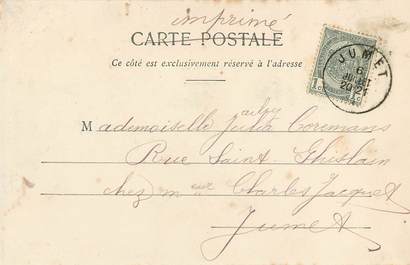 imprimé
CARTE POSTALE
Ce côté est exclusivement réservé à l'adresse
JUMET
6
JUILLET
20-21
1c
Mademoiselle Julia Coremans
Rue Saint-Ghislain
chez meur Charles Jacquet
Jumet